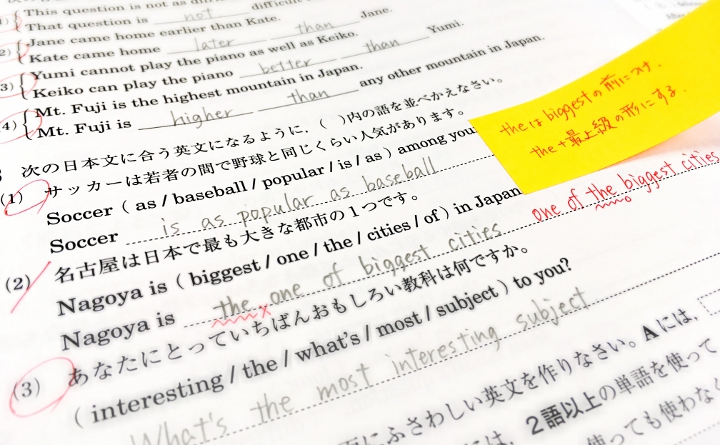 This question is not as
1) That question is not difficult
Jane came home earlier than Kate.
2) Kate came home later than Jane.
Yumi cannot play the piano as well as Keiko.
3) Keiko can play the piano better than Yumi.
Mt. Fuji is the highest mountain in Japan.
(4) Mt. Fuji is higher than any other mountain in Japan.
次の日本文に合う英文になるように, ( )内の語を並べかえなさい。
(1) サッカーは若者の間で野球と同じくらい人気があります。
Soccer ( as / baseball / popular / is / as ) among you
Soccer is as popular as baseball
(2) 名古屋は日本で最も大きな都市の1つです。
Nagoya is ( biggest / one / the / cities / of ) in Japan
Nagoya is the one of biggest cities
one of the biggest cities
(3) あなたにとっていちばんおもしろい教科は何ですか。
( interesting / the / what's / most / subject ) to you?
What's the most interesting subject
にふさわしい英文を作りなさい。Aには,
2語以上の単語を使って
使っても使わな
theはbiggestの前につけ.
the+最上級の形にする.